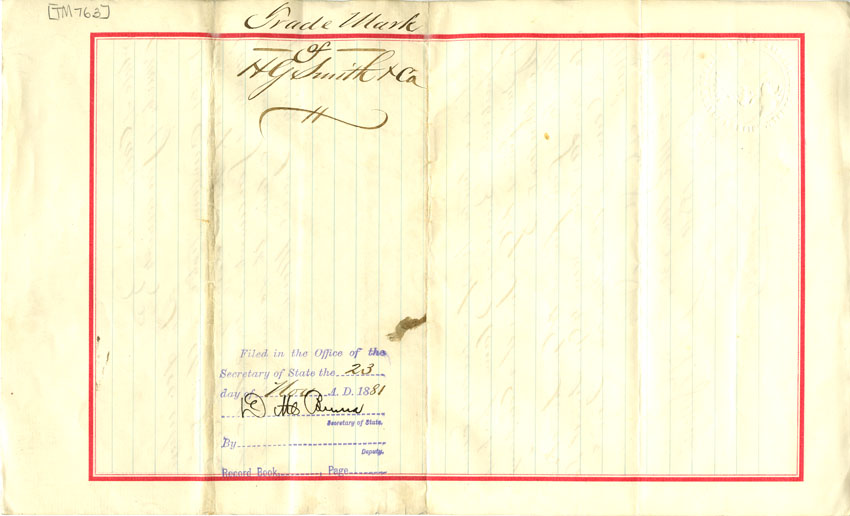 [TM763]
Trade Mark
of
H G Smith & Co
Filed in the Office of the
Secretary of State the 23
day of Nov A. D. 1881
Secretary of State.
By
Deputy.
Record Book, Page